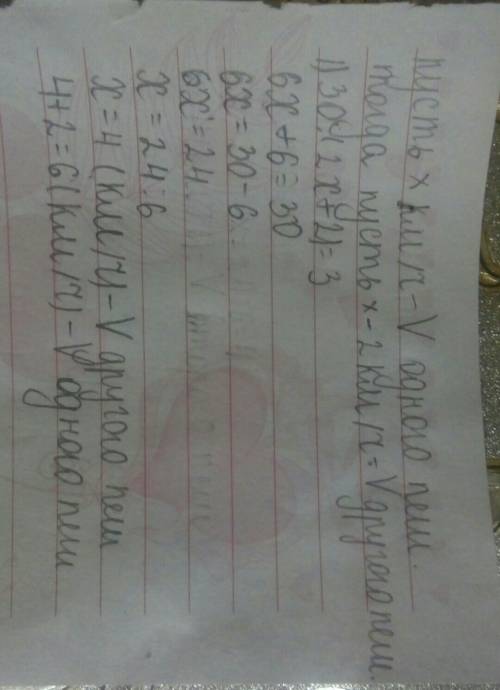 пусть x км/ч – V одного пеш.
тогда пусть x – 2 км/ч = V другого пеш.
1) 30:(2x+2)=3
6x+6=30
6x=30-6
6x=24
x=24:6
x=4 (км/ч) – V другого пеш
4+2=6(км/ч) – V одного пеш